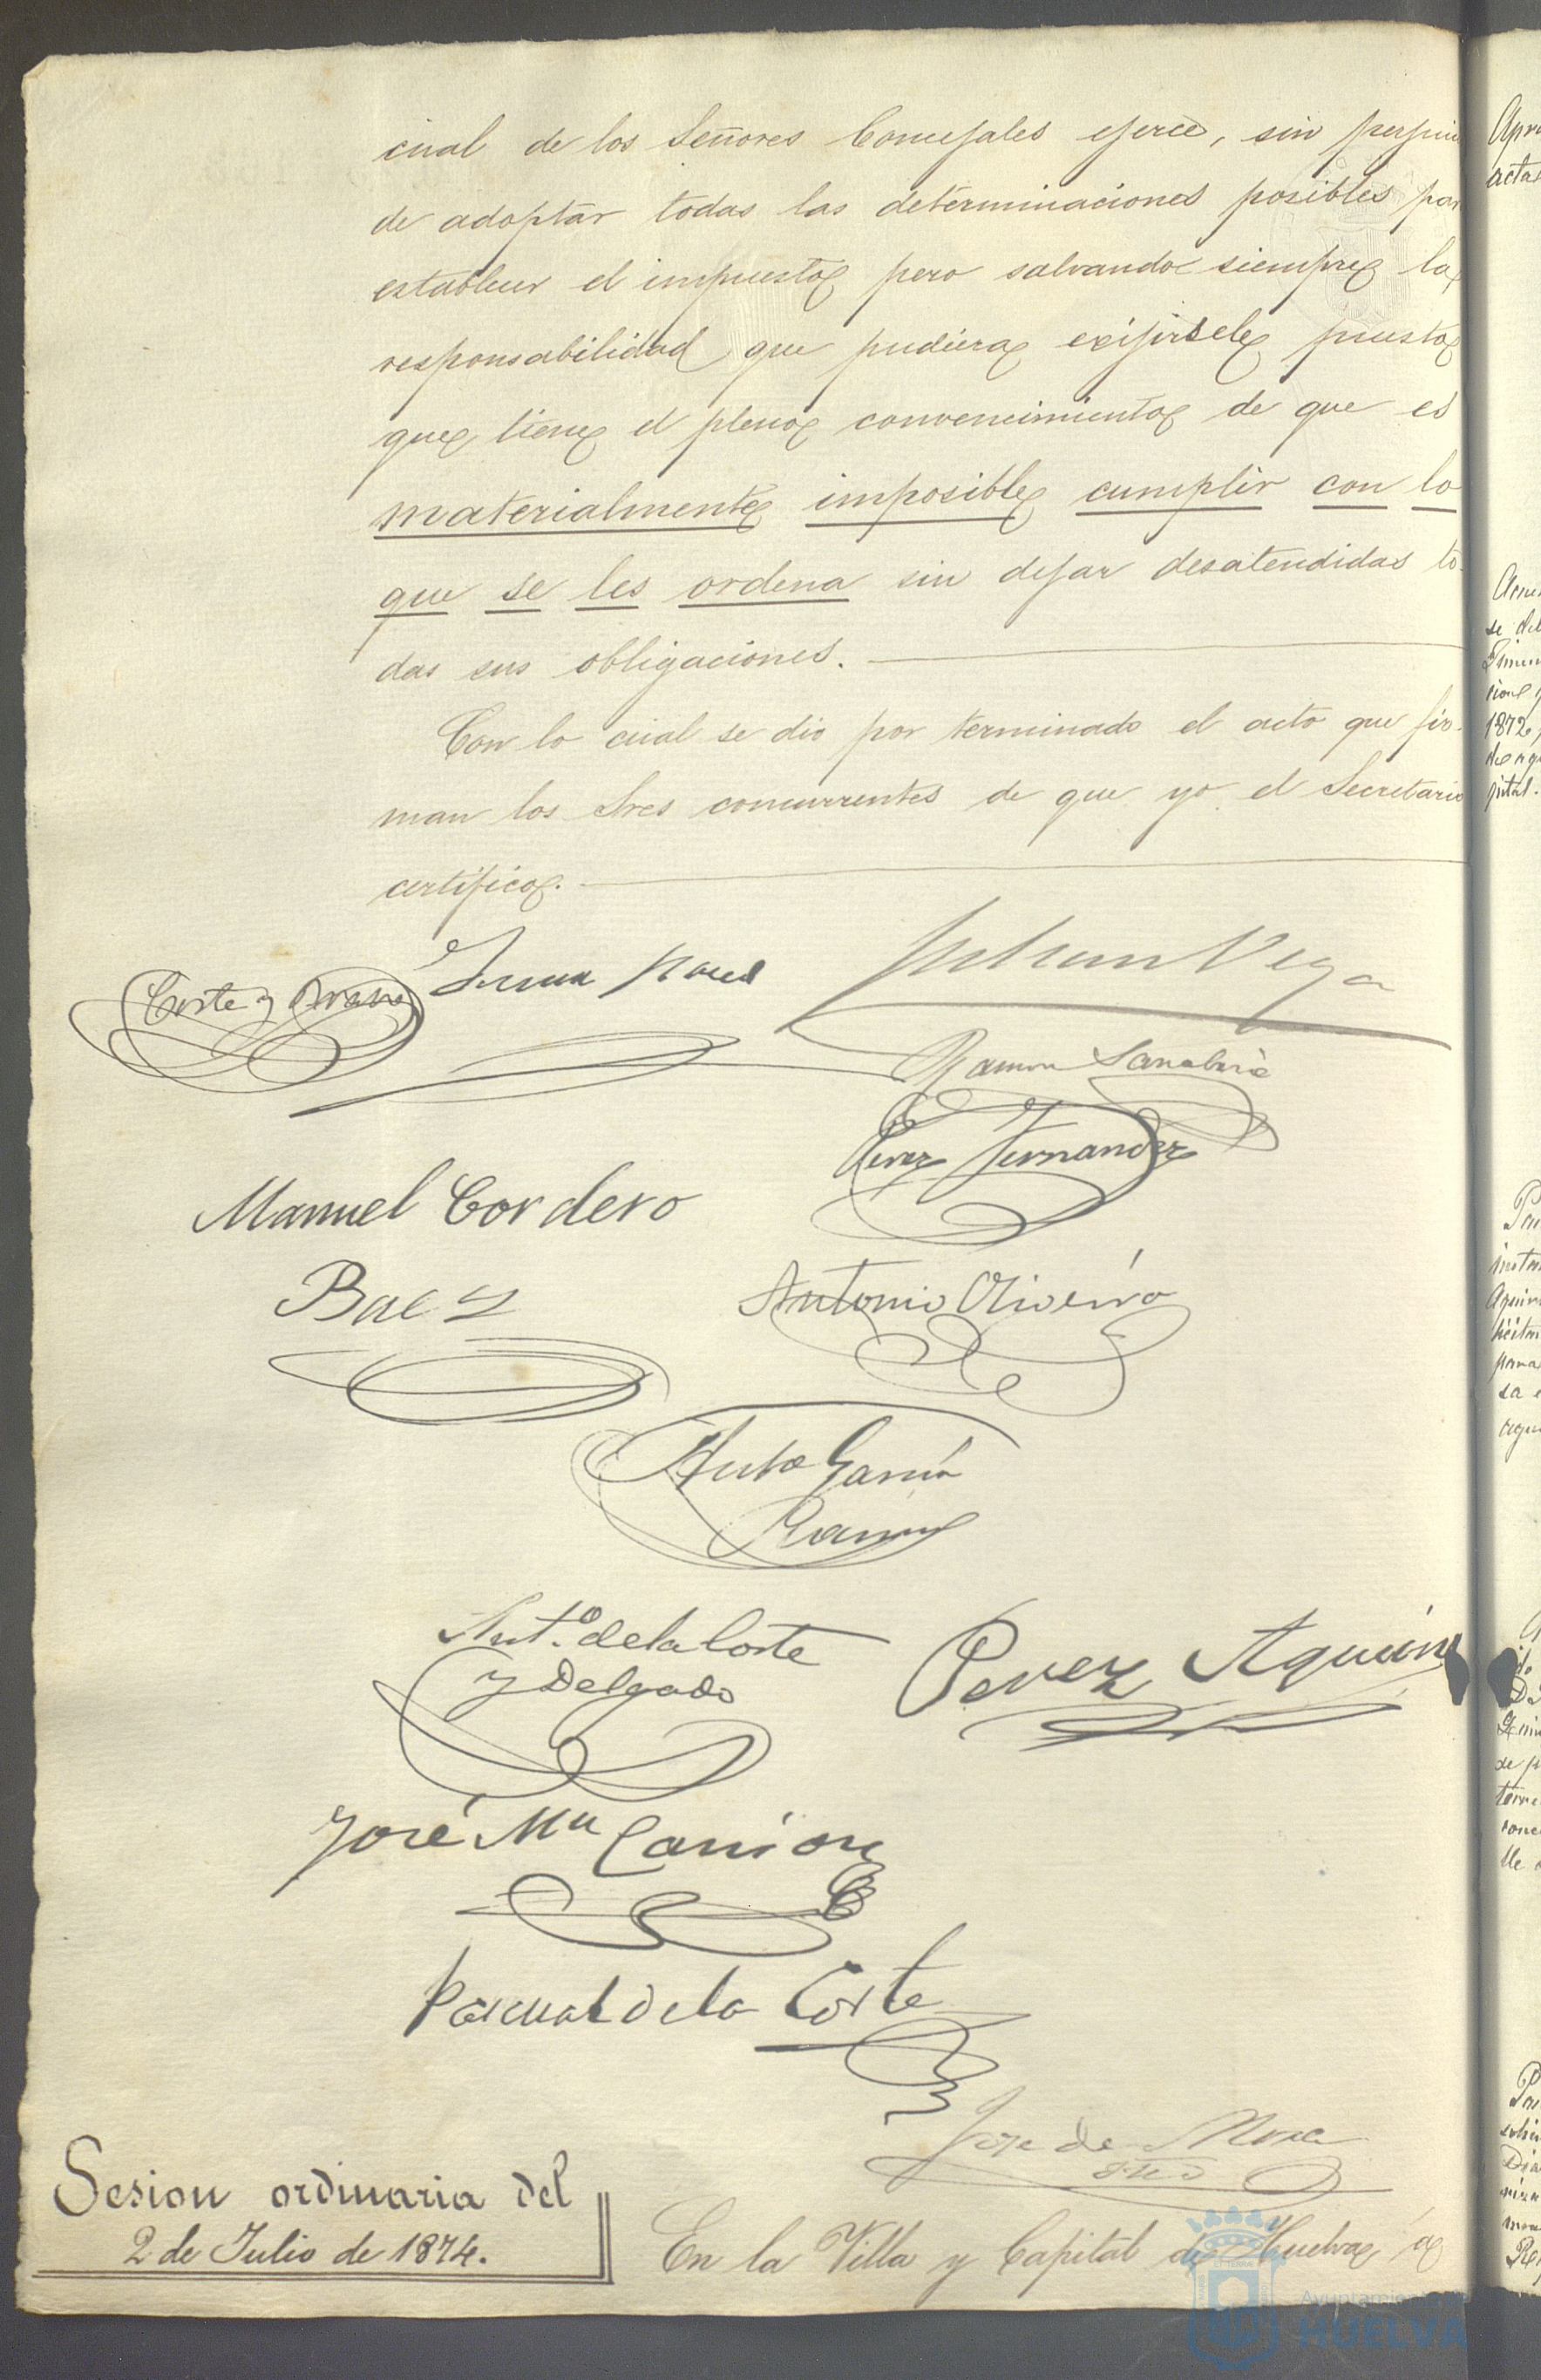 cual de los Señores Concejales ejerce, sin perjui
de adoptar todas las determinaciones posibles par
establecer el impuesto pero salvando siempre la
responsabilidad que pudiera exijirsele puesto
que tiene el pleno convencimiento de que es
materialmente imposible cumplir con lo
que se les ordena sin dejar desatendidas to-
das sus obligaciones.
Con lo cual se dio por terminado el acto que fir-
man los Sres concurrentes de que yo el Secretario
certifico.
Corte y
Vega
Ramon Sanabria
Perez Fernandez
Manuel Cordero
Baez
Antonio Oliveira
Anto Garcia
Ramos
Ant.º de la Corte
y Delgado
Perez Aquin
José Mª Carrion
Pascual de la Corte
Jose de Mora
Srio
Sesion ordinaria del
2 de Julio de 1874.
En la Villa y Capital de Huelva á
Ayuntamiento
HUELVA
acta
1872,